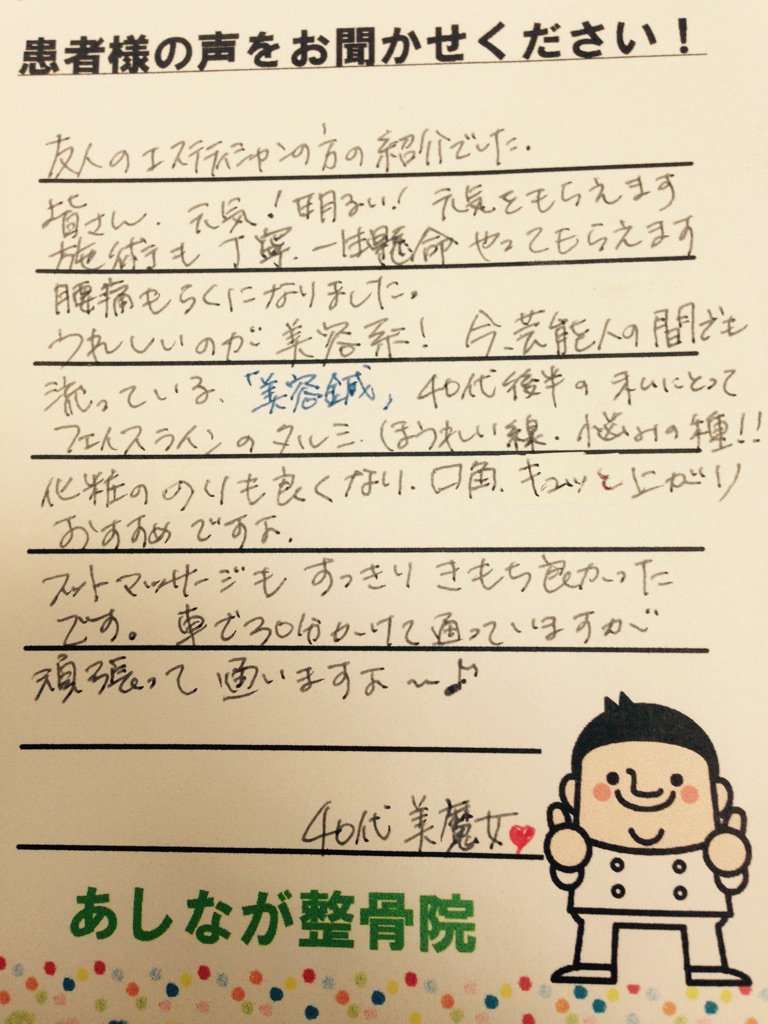 患者様の声をお聞かせください！
友人のエステティシャンの方の紹介でした。
皆さん、元気！明るい！元気をもらえます
施術も丁寧、一生懸命やってもらえます
腰痛もらくになりました。
うれしいのが美容系！今、芸能人の間でも
流っている、「美容鍼」40代後半の私にとって
フェイスラインのタルミ、ほうれい線、悩みの種!!
化粧ののりも良くなり、口角、キュッと上がり
おすすめですよ。
フットマッサージもすっきりきもち良かった
です。車で30分かけて通っていますが
頑張って通いますよ〜♪
40代美魔女
あしなが整骨院